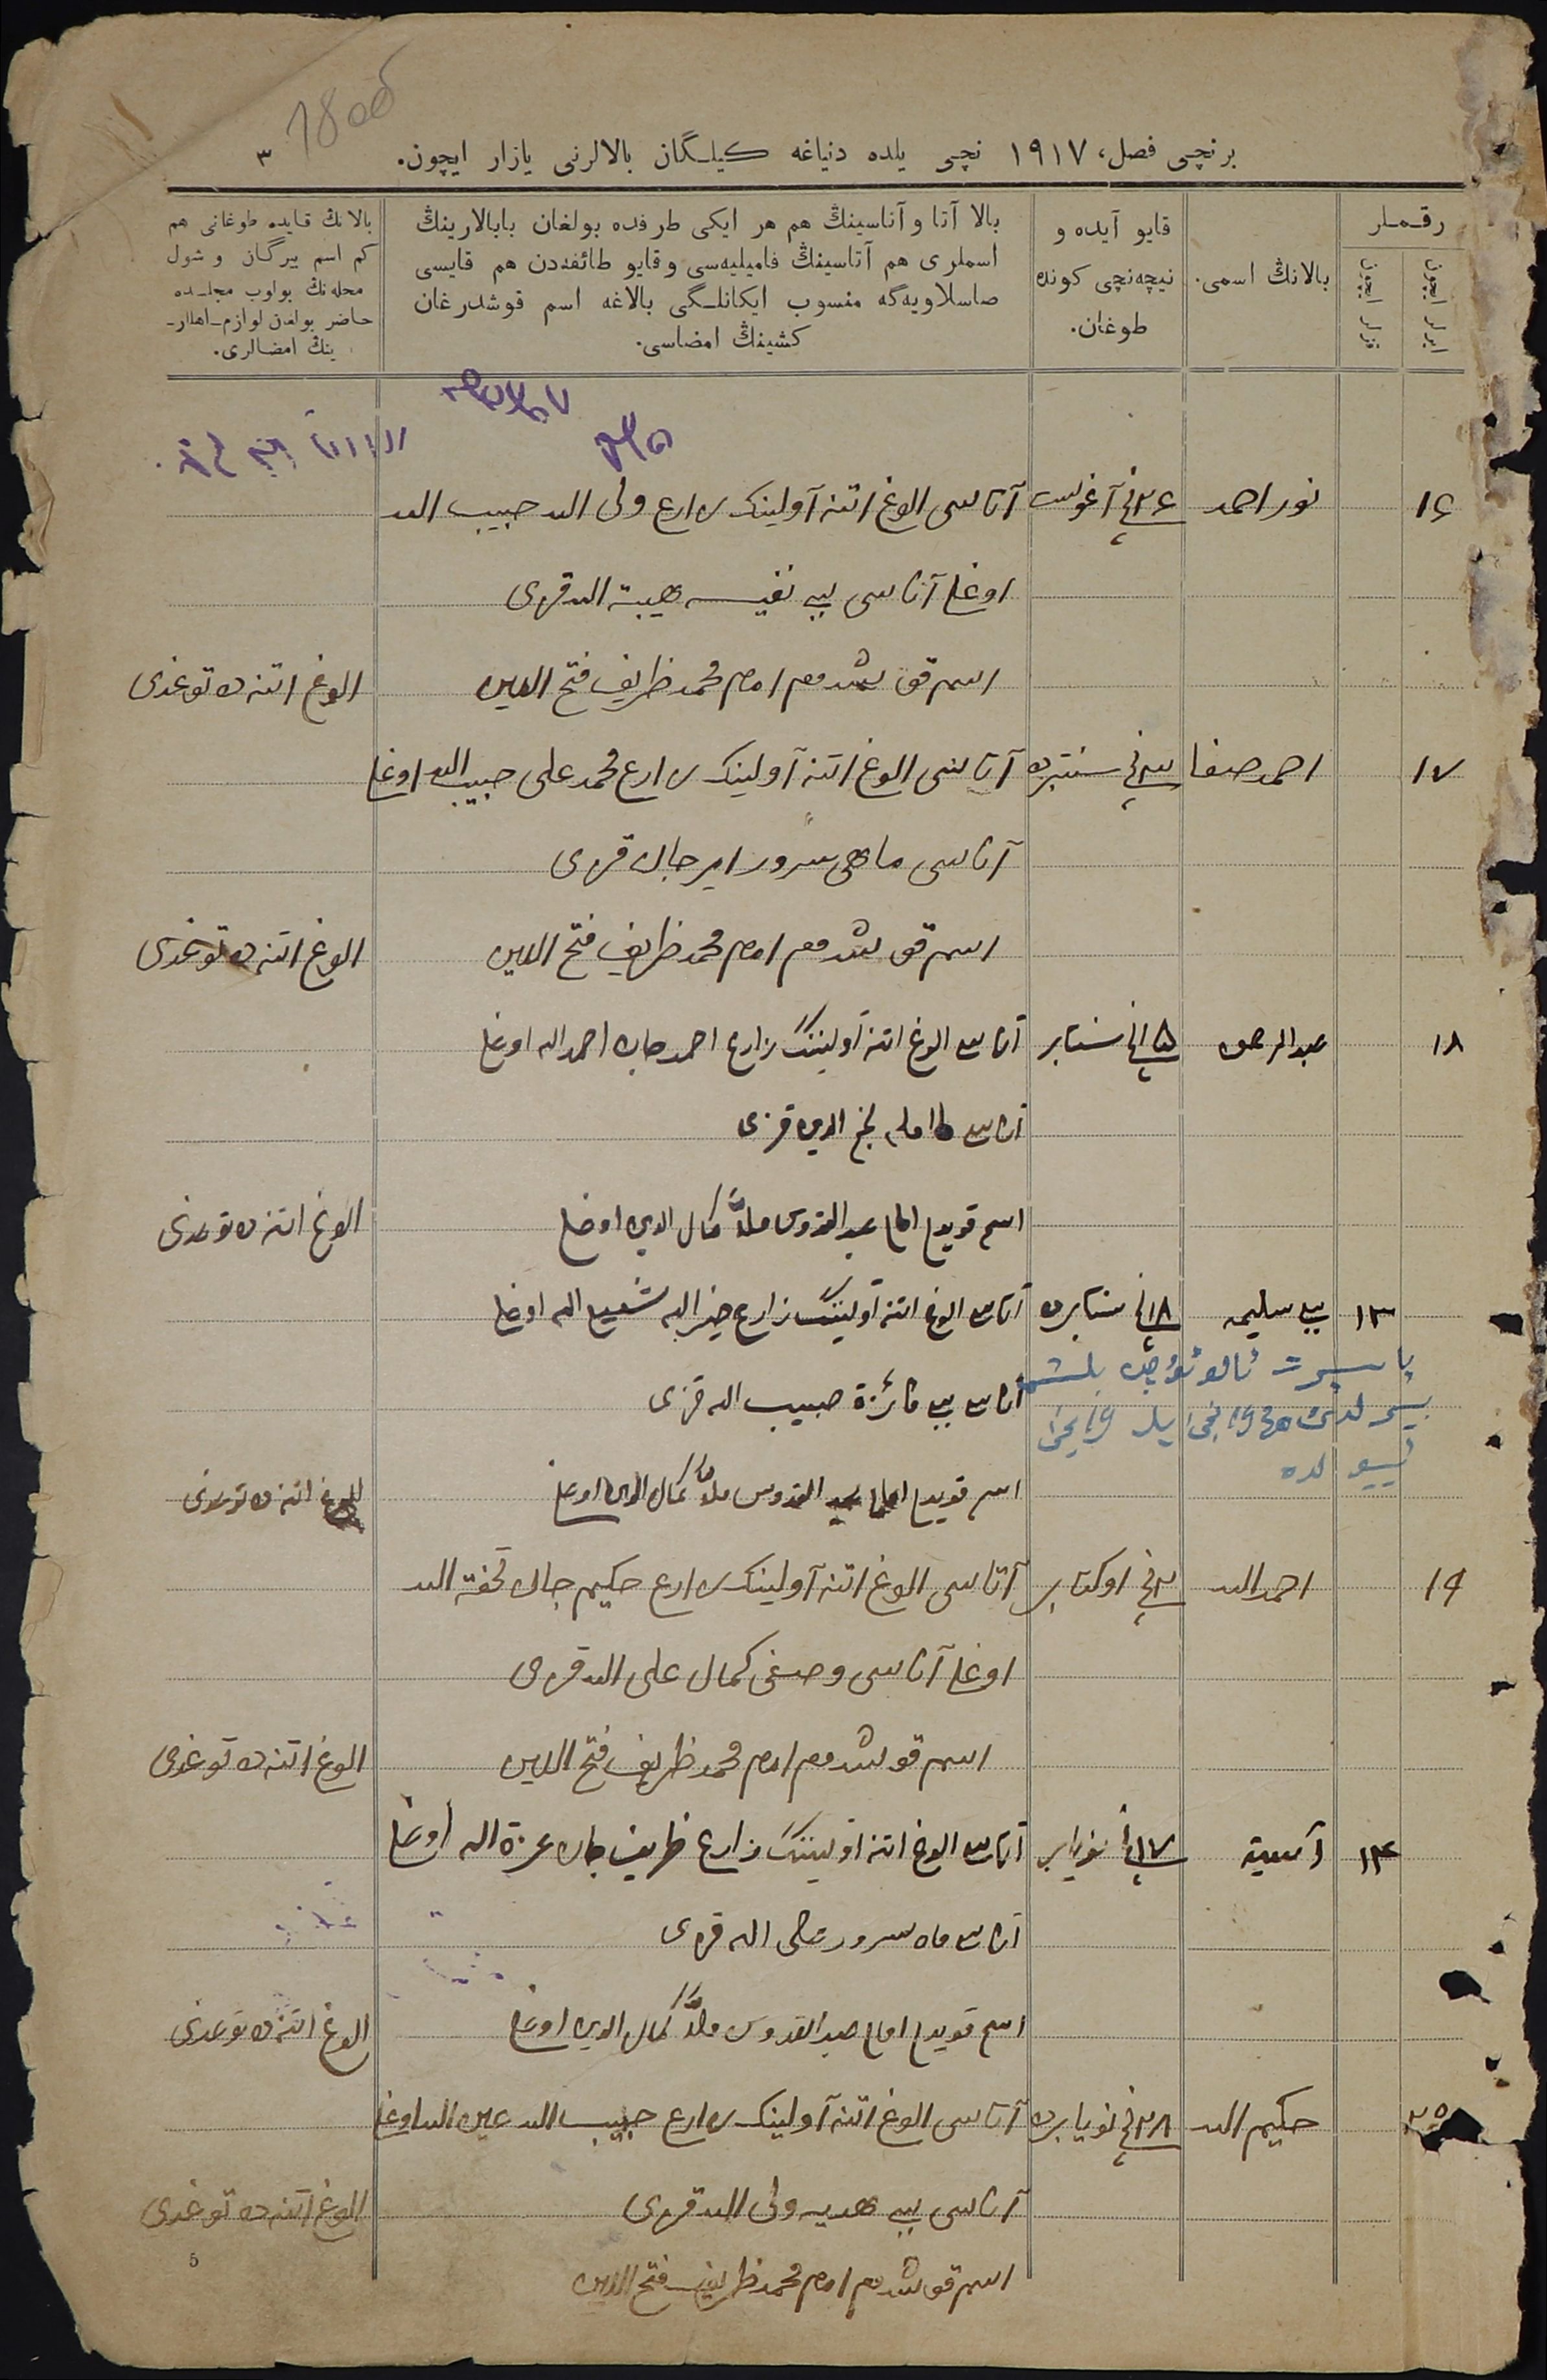 1800
برنچی فصل، ۱۹۱۷ نچی یلده دنیاغه کیلـگان بالالرنی یازار ایچون.
۳
رقـملر
ایرلر ایچون
قزلر ایچون
بالانڭ اسمی.
قایو آیده و
نیچه‌نچی کونده
طوغان.
بالا آتا و آناسینڭ هم هر ایکی طرفده بولغان بابالارینڭ
اسملری هم آتاسینڭ فامیلیه‌سی و قایو طائفه‌دن هم قایسی
صاسلاویه‌گه منسوب ایکانلـگی بالاغه اسم قوشدرغان
کشینڭ امضاسی.
بالانڭ قایده طوغانی هم
کم اسم بیرگان و شول
محله‌نڭ بولوب مجلـده
حاضر بولغان لوازم‌ـ‌اهللرـ
ینڭ امضالری.
۱۶ نور احمد ۲۶ نچی آغوست آتاسی الوغ اتنه آولینک زارع ولی الله حبیب الله
اوغلی آناسی بیبی نفیسه هیبة الله قزی
اسم قوشدم امام محمد ظریف فتح الدین الوغ اتنه ده توغدی
۱۷ احمد صفا ۳ نچی سنتبرده آتاسی الوغ اتنه آولینک زارع محمد علی حبیب الله اوغلی
آناسی ماهی سرور ایرجان قزی
اسم قوشدم امام محمد ظریف فتح الدین الوغ اتنه ده توغدی
۱۸ عبدالرحمن ۱۵ نچی سنتابر آتاسی الوغ اتنه آولیننگ زارع احمدجان احمدالله اوغلی
آناسی نجم الدین قزی
اسم قویدم امام عبدالقدوس ملا کمال الدین اوغلی الوغ اتنه ده توغدی
۱۳ بیبی سلیمه ۱۸ نچی سنتابرده آتاسی الوغ اتنه آولیننگ زارع خیرالله شفیع الله اوغلی
آناسی بیبی فائزة حبیب الله قزی
اسم قویدم امام عبدالقدوس ملا کمال الدین اوغلی الوغ اتنه ده توغدی
۱۹ احمدالله ۲ نچی اوکتابر آتاسی الوغ اتنه آولینک زارع حکیم جان تحفة الله
اوغلی آناسی وصفی کمال علی الله قزی
اسم قوشدم امام محمد ظریف فتح الدین الوغ اتنه ده توغدی
۱۴ آسیة ۱۷ نچی نویابر آتاسی الوغ اتنه آولیننگ زارع ظریف جان عزة الله اوغلی
آناسی ماه سرور الله قزی
اسم قویدم امام عبدالقدوس ملا کمال الدین اوغلی الوغ اتنه ده توغدی
۲۰ حکیم الله ۲۸ نچی نویابرده آتاسی الوغ اتنه آولینک زارع حبیب الله عین الله اوغلی
آناسی بیبی هدیه ولی الله قزی الوغ اتنه ده توغدی
اسم قوشدم امام محمد ظریف فتح الدین
5